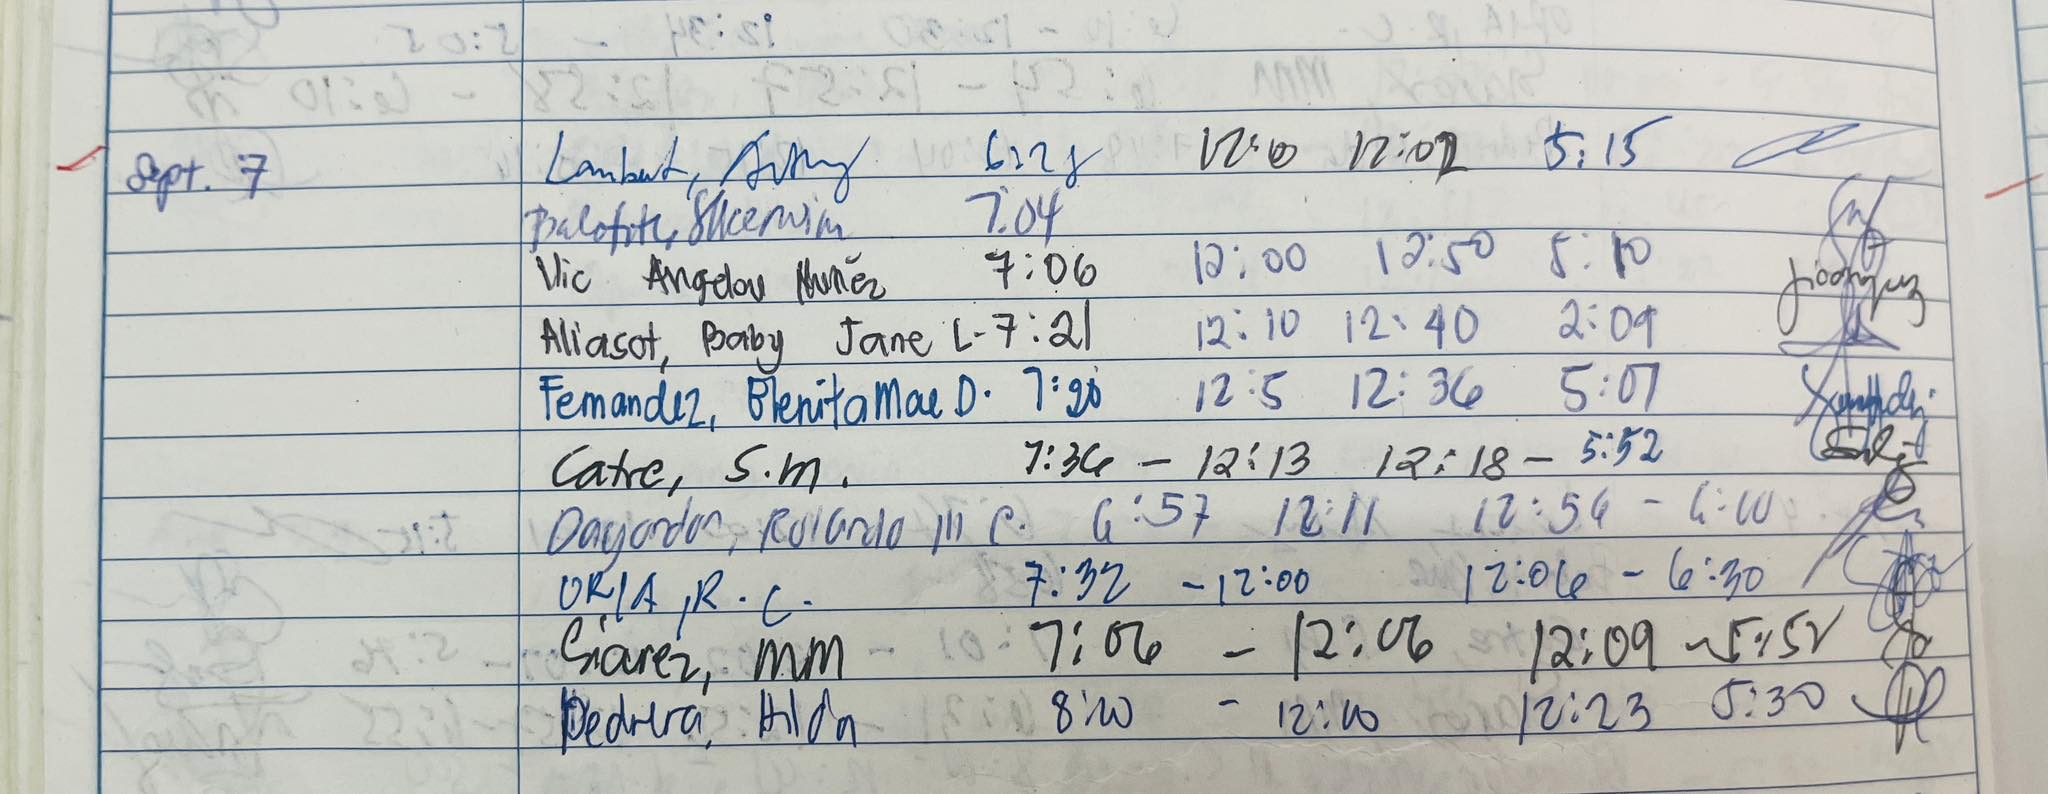 Sept. 7 Lambut, 6:28 12:0 12:02 5:15
7:04
Vic Angelou Nuñez 7:06 12:00 12:50 5:10
Aliasot, Baby Jane L- 7:21 12:10 12:40 2:09
Fernandez, Blenita Mae D. 7:20 12:5 12:36 5:07
Catre, S.M. 7:36 - 12:13 12:18 - 5:52
Dayondon, Rolando III C. 6:57 12:11 12:56 - 6:10
ORIA, R. C. 7:32 - 12:00 12:06 - 6:30
Suarez, MM 7:06 - 12:06 12:09 - 5:52
Pedrera, Hilda 8:20 - 12:20 12:23 5:30